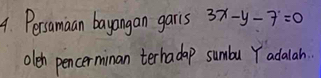 4. Persamaan bayangan garis 3x-y-7=0
oleh pencerminan terhadap sumbu Y adalah..